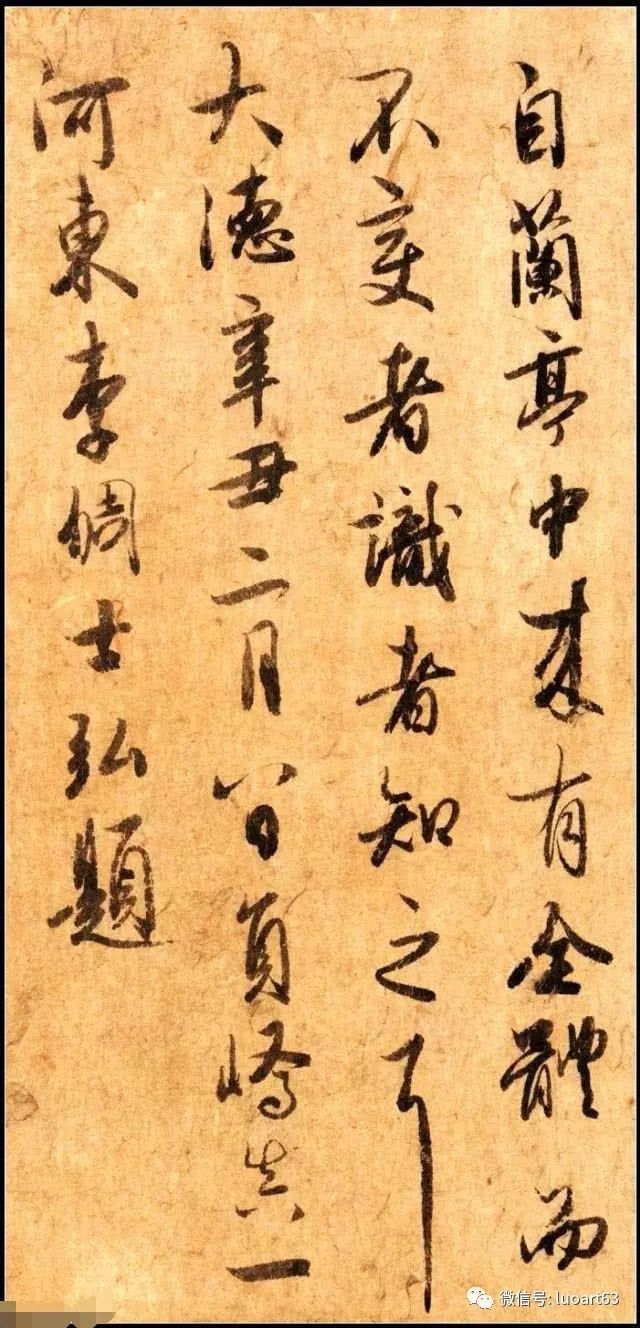 自蘭亭中来有全體而
不变者識者知之耳
大德辛丑二月八日員嶠真一
河東李倜士弘題
微信号: luoart63